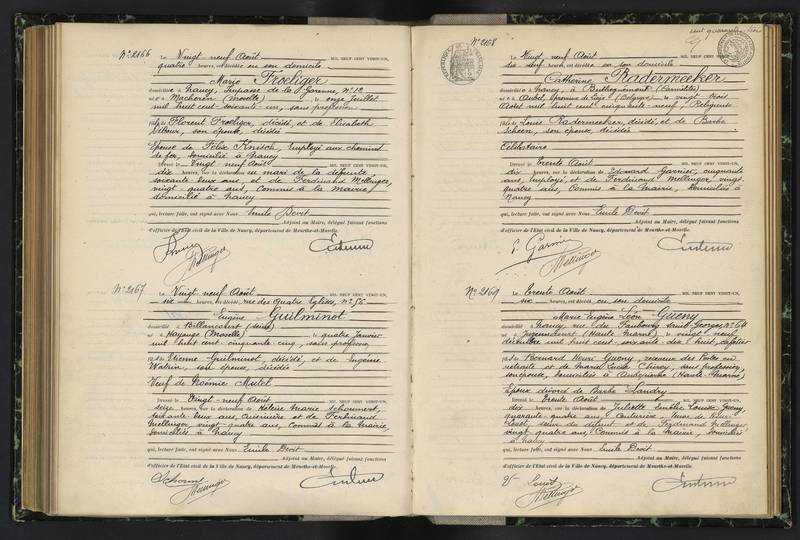 N° 2166
Le Vingt neuf Août MIL NEUF CENT VINGT-UN,
quatre heures, est décédée en son domicile
Marie Froeliger
domiciliée à Nancy, Impasse de la Garenne, N° 12
née à Macheren (Moselle) le onze juillet
mil huit cent soixante un, sans profession
fille de Florent Froeliger, décédé, et de Elisabeth
son épouse, décédée
Epouse de Félix Knisch, Employé aux chemins
de fer, domicilié à Nancy
Dressé le Vingt neuf Août MIL NEUF CENT VINGT-UN,
dix heures, sur la déclaration du mari de la défunte,
soixante deux ans, et de Ferdinand Mellinger,
vingt quatre ans, Commis à la mairie,
domicilié à Nancy
qui, lecture faite, ont signé avec Nous Emile Devit
Adjoint au Maire, délégué faisant fonctions
d'officier de l'État civil de la Ville de Nancy, département de Meurthe-et-Moselle.
Mellinger
N° 2167
Le Vingt neuf Août MIL NEUF CENT VINGT-UN,
six heures, est décédé rue des Quatre Eglises, N° 56
Eugène Guilminot
domicilié à Billancourt (Seine)
né à Hayange (Moselle) le quatre Janvier
mil huit cent cinquante cinq, sans profession
fils de Etienne Guilminot, décédé, et de Eugénie
Watrin, son épouse, décédée
Veuf de Noémie Mutel
Dressé le Vingt-neuf Août MIL NEUF CENT VINGT-UN,
seize heures, sur la déclaration de Hélène Marie
soixante deux ans, et de Ferdinand
Mellinger, vingt quatre ans, Commis à la Mairie,
domiciliés à Nancy
qui, lecture faite, ont signé avec Nous Emile Devit
Adjoint au Maire, délégué faisant fonctions
d'officier de l'État civil de la Ville de Nancy, département de Meurthe-et-Moselle.
Mellinger
cent quarante-trois
N° 2168
Le Vingt neuf Août MIL NEUF CENT VINGT-UN,
dix neuf heures, est décédée en son domicile
Catherine Radermecker
domiciliée à Nancy, à Bonthonnément
née à Aubel, Province de Liège (Belgique) le vingt trois
Août mil huit cent cinquante neuf, Religieuse
fille de Louis Radermecker, décédé, et de Barbe
Scheen, son épouse, décédée
Célibataire
Dressé le Trente Août MIL NEUF CENT VINGT-UN,
dix heures, sur la déclaration de Edouard Garnier, cinquante
ans, Employé, et de Ferdinand Mellinger, vingt
quatre ans, Commis à la Mairie, domiciliés à
Nancy
qui, lecture faite, ont signé avec Nous Emile Devit
Adjoint au Maire, délégué faisant fonctions
d'officier de l'État civil de la Ville de Nancy, département de Meurthe-et-Moselle.
E. Garnier
Mellinger
N° 2169
Le Trente Août MIL NEUF CENT VINGT-UN,
six heures, est décédé en son domicile
Marie Eugène Léon Gueny
domicilié à Nancy, rue du Faubourg Saint Georges, N° 64
né à (Haute Marne) le vingt neuf
décembre mil huit cent soixante dix huit, Cafetier
fils de Bernard Henri Gueny, receveur des Postes en
retraite et de Marie Lucie sans profession,
son épouse, domiciliés à (Haute Marne)
Epoux divorcé de Barbe Landry
Dressé le Trente Août MIL NEUF CENT VINGT-UN,
dix heures, sur la déclaration de Juliette Emélie Louise Gueny,
quarante quatre ans, Couturière,
soeur du défunt et de Ferdinand Mellinger,
vingt quatre ans, Commis à la Mairie, domiciliés
à Nancy
qui, lecture faite, ont signé avec Nous Emile Devit
Adjoint au Maire, délégué faisant fonctions
d'officier de l'État civil de la Ville de Nancy, département de Meurthe-et-Moselle.
Mellinger